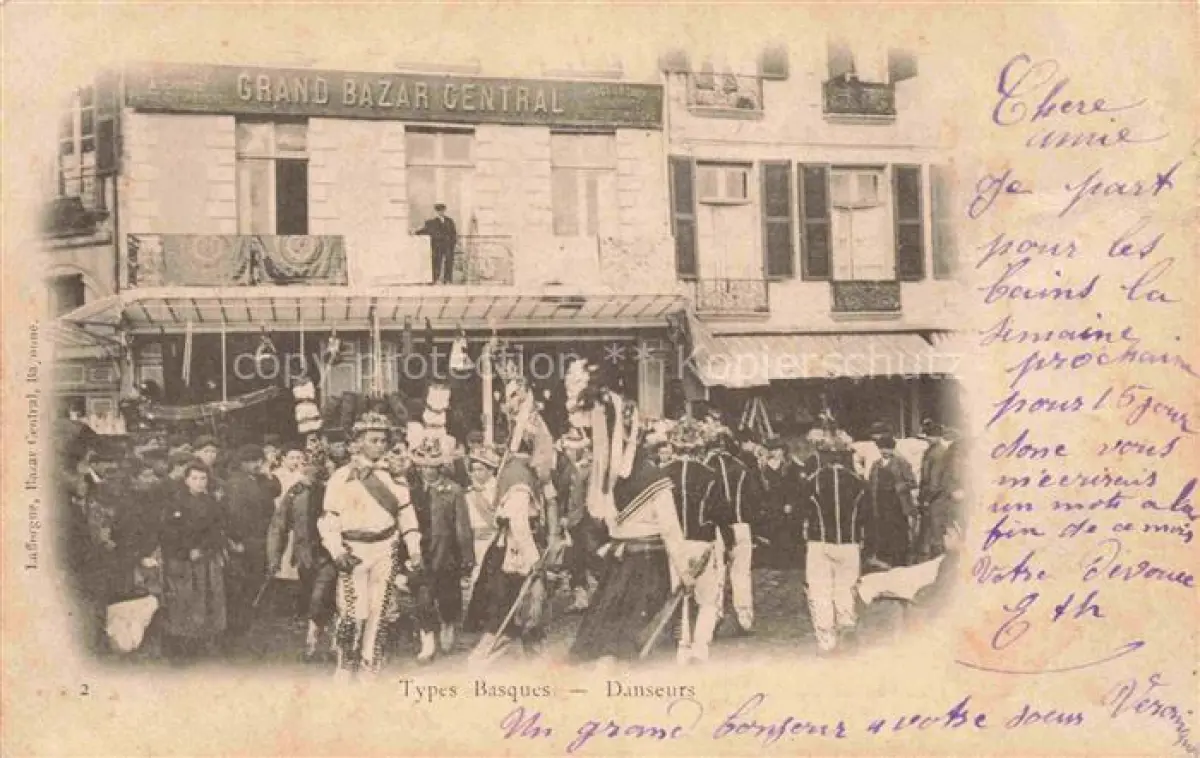 GRAND BAZAR CENTRAL
copyright protection ** * Kopierschutz
Lafforgue, Bazar Central, Bayonne.
2
Types Basques — Danseurs
Chere
amie
Je part
pour les
bains la
semaine
prochain
pour 15 jour
donc vous
m'ecrirais
un mots a la
fin de ce mois
Votre Devouee
Eth
Un grand bonjour a votre soeur